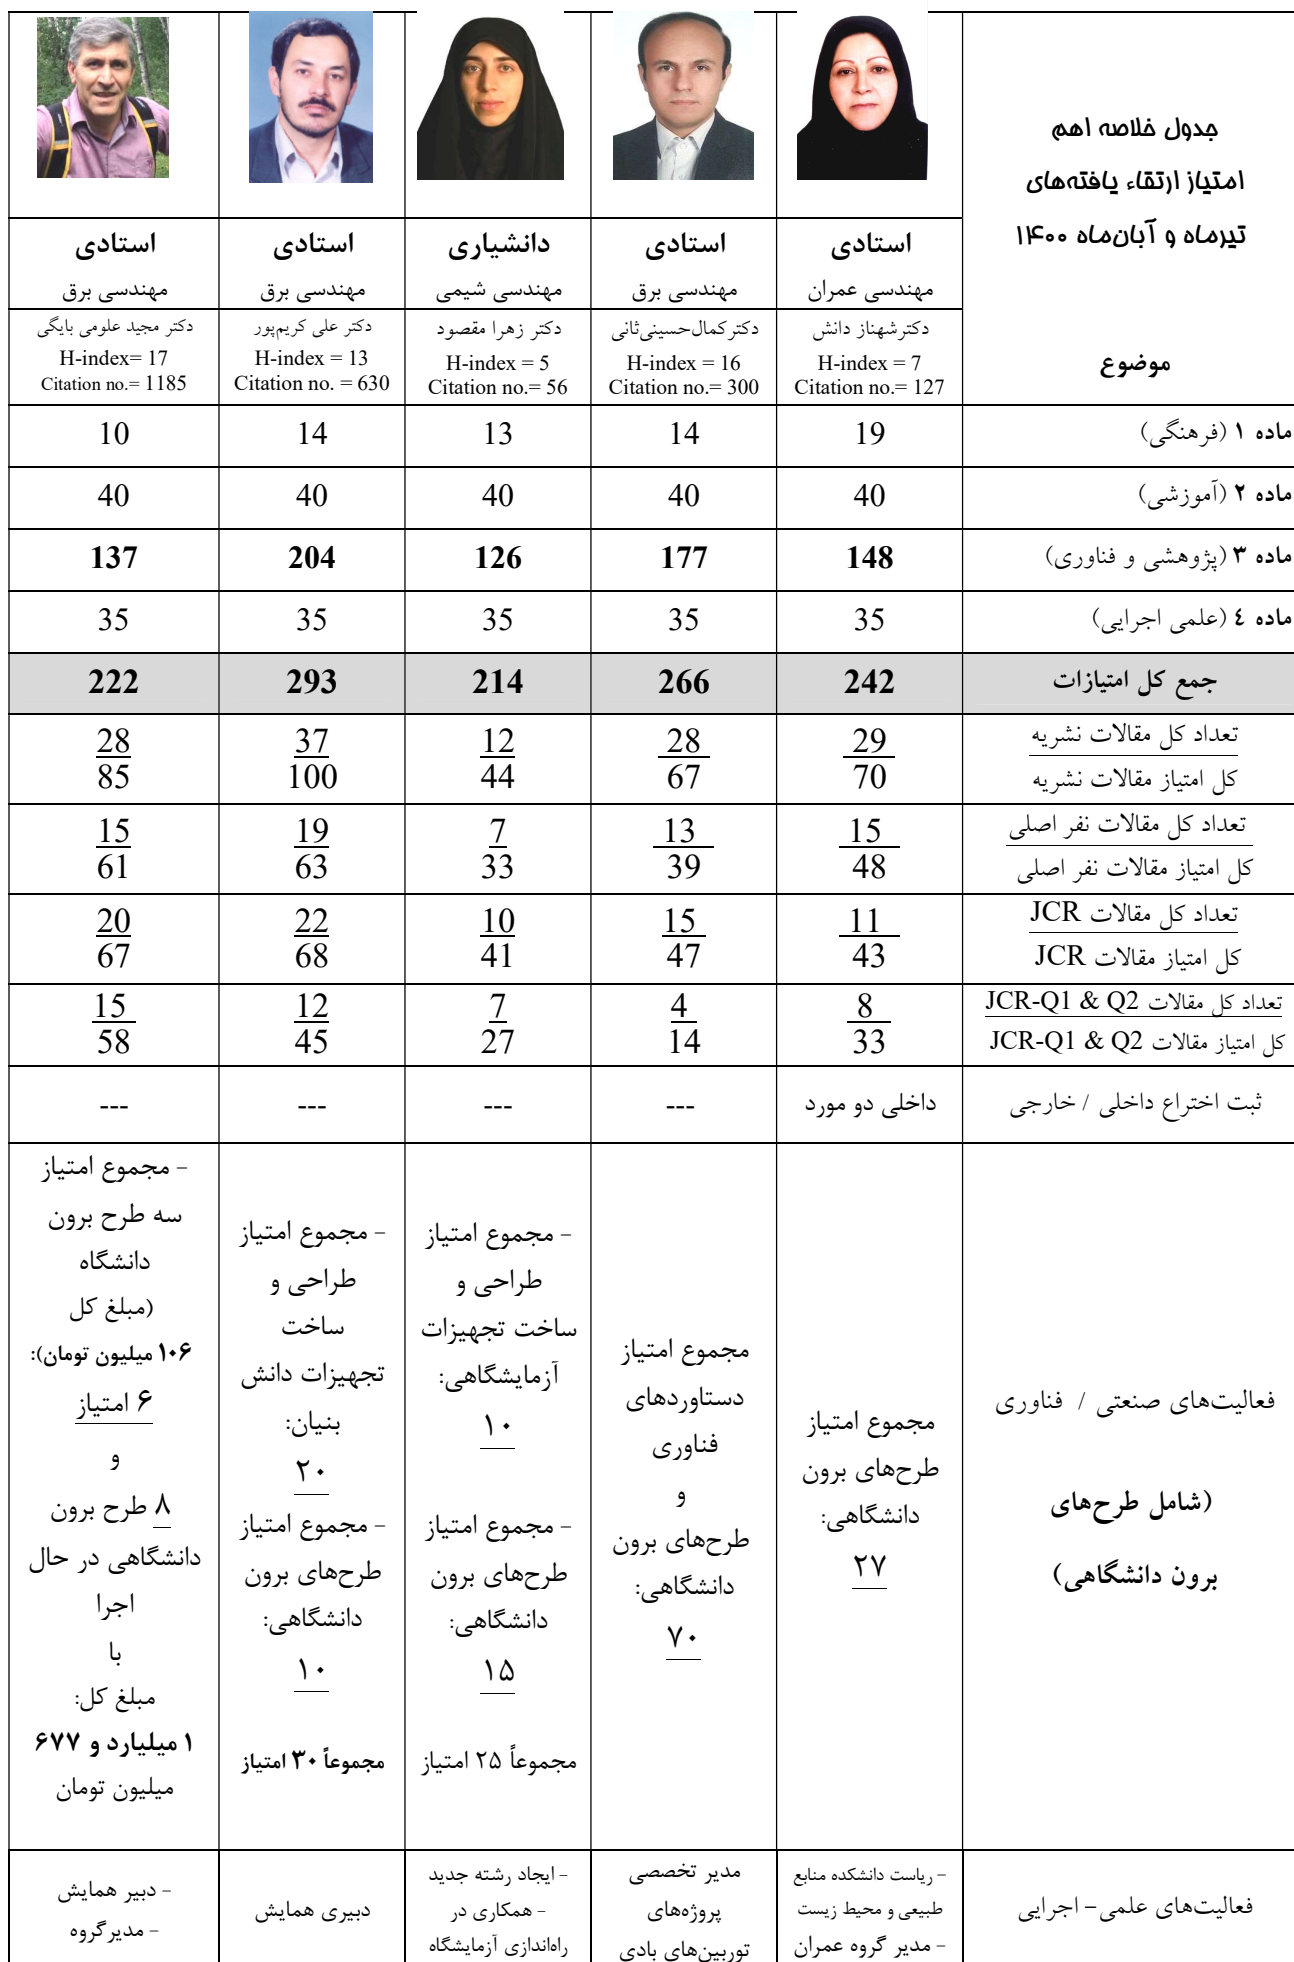 جدول خلاصه اهم
امتیاز ارتقاء یافته‌های
تیرماه و آبان‌ماه ۱۴۰۰
موضوع
استادی
مهندسی عمران
دکترشهناز دانش
H-index = 7
Citation no.= 127
استادی
مهندسی برق
دکترکمال‌حسینی‌ثانی
H-index = 16
Citation no.= 300
دانشیاری
مهندسی شیمی
دکتر زهرا مقصود
H-index = 5
Citation no.= 56
استادی
مهندسی برق
دکتر علی کریم‌پور
H-index = 13
Citation no. = 630
استادی
مهندسی برق
دکتر مجید علومی بایگی
H-index= 17
Citation no.= 1185
ماده ۱ (فرهنگی) 19 14 13 14 10
ماده ۲ (آموزشی) 40 40 40 40 40
ماده ۳ (پژوهشی و فناوری) 148 177 126 204 137
ماده ٤ (علمی اجرایی) 35 35 35 35 35
جمع کل امتیازات 242 266 214 293 222
تعداد کل مقالات نشریه 29 28 12 37 28
کل امتیاز مقالات نشریه 70 67 44 100 85
تعداد کل مقالات نفر اصلی 15 13 7 19 15
کل امتیاز مقالات نفر اصلی 48 39 33 63 61
تعداد کل مقالات JCR 11 15 10 22 20
کل امتیاز مقالات JCR 43 47 41 68 67
تعداد کل مقالات JCR-Q1 & Q2 8 4 7 12 15
کل امتیاز مقالات JCR-Q1 & Q2 33 14 27 45 58
ثبت اختراع داخلی / خارجی داخلی دو مورد --- --- --- ---
فعالیت‌های صنعتی / فناوری
(شامل طرح‌های
برون دانشگاهی)
مجموع امتیاز
طرح‌های برون
دانشگاهی:
۲۷
مجموع امتیاز
دستاوردهای
فناوری
و
طرح‌های برون
دانشگاهی:
۷۰
- مجموع امتیاز
طراحی و
ساخت تجهیزات
آزمایشگاهی:
۱۰
- مجموع امتیاز
طرح‌های برون
دانشگاهی:
۱۵
مجموعاً ۲۵ امتیاز
- مجموع امتیاز
طراحی و
ساخت
تجهیزات دانش
بنیان:
۲۰
- مجموع امتیاز
طرح‌های برون
دانشگاهی:
۱۰
مجموعاً ۳۰ امتیاز
- مجموع امتیاز
سه طرح برون
دانشگاه
(مبلغ کل
۱۰۶ میلیون تومان):
۶ امتیاز
و
۸ طرح برون
دانشگاهی در حال
اجرا
با
مبلغ کل:
۱ میلیارد و ۶۷۷
میلیون تومان
فعالیت‌های علمی- اجرایی
- ریاست دانشکده منابع
طبیعی و محیط زیست
- مدیر گروه عمران
مدیر تخصصی
پروژه‌های
توربین‌های بادی
- ایجاد رشته جدید
- همکاری در
راه‌اندازی آزمایشگاه
دبیری همایش
- دبیر همایش
- مدیرگروه